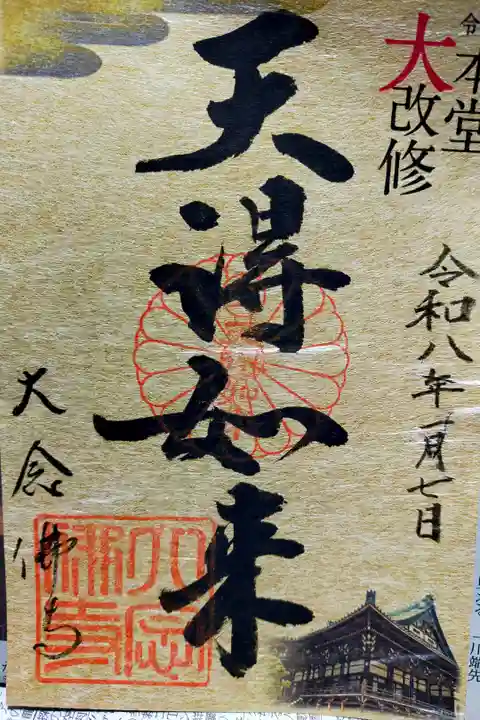 令
本堂
大改修
令和八年一月七日
天得如来
大念佛寺
大念
佛寺
川端先